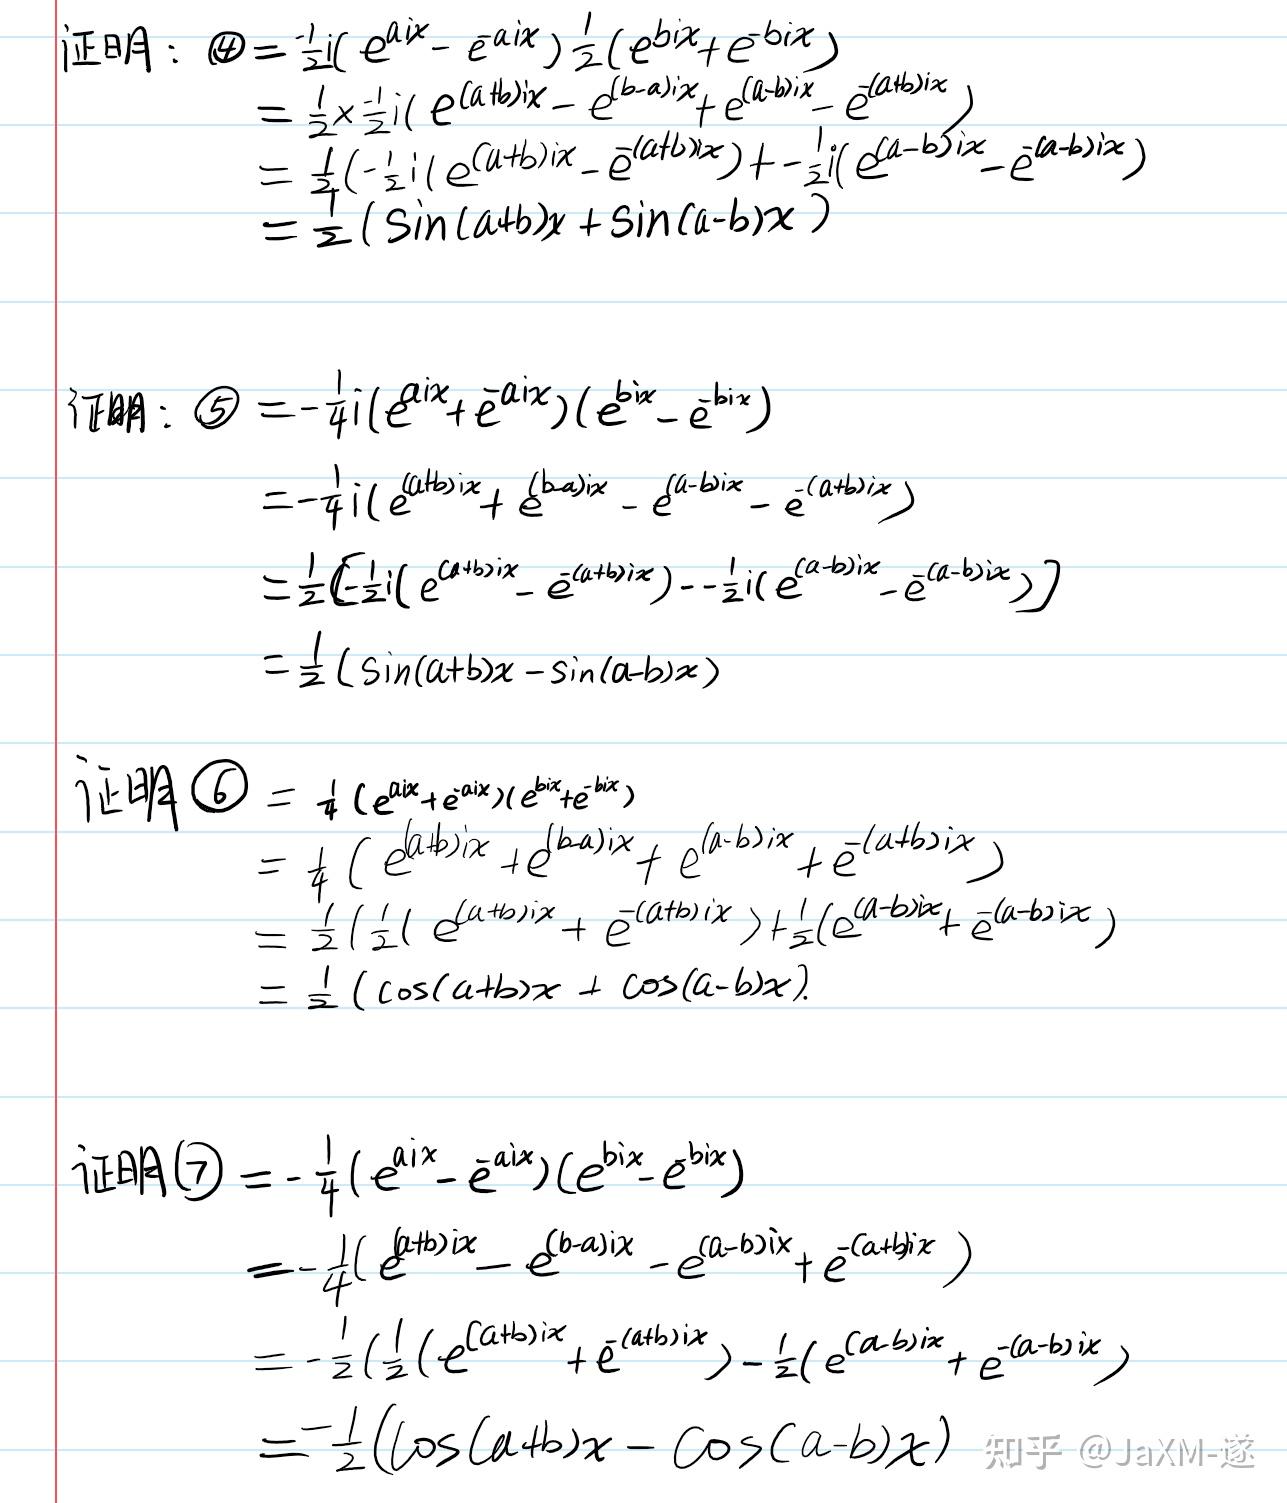 证明：④ = -½i(e^{aix} - e^{-aix})½(e^{bix} + e^{-bix})
= ½ × -½i(e^{(a+b)ix} - e^{(b-a)ix} + e^{(a-b)ix} - e^{-(a+b)ix})
= ½(-½i(e^{(a+b)ix} - e^{-(a+b)ix}) + -½i(e^{(a-b)ix} - e^{-(a-b)ix})
= ½(sin(a+b)x + sin(a-b)x)
证明：⑤ = -¼i(e^{aix} + e^{-aix})(e^{bix} - e^{-bix})
= -¼i(e^{(a+b)ix} + e^{(b-a)ix} - e^{(a-b)ix} - e^{-(a+b)ix})
= ½[-½i(e^{(a+b)ix} - e^{-(a+b)ix}) - -½i(e^{(a-b)ix} - e^{-(a-b)ix})]
= ½(sin(a+b)x - sin(a-b)x)
证明⑥ = ¼(e^{aix} + e^{-aix})(e^{bix} + e^{-bix})
= ¼(e^{(a+b)ix} + e^{(b-a)ix} + e^{(a-b)ix} + e^{-(a+b)ix})
= ½(½(e^{(a+b)ix} + e^{-(a+b)ix}) + ½(e^{(a-b)ix} + e^{-(a-b)ix})
= ½(cos(a+b)x + cos(a-b)x).
证明⑦ = -¼(e^{aix} - e^{-aix})(e^{bix} - e^{-bix})
= -¼(e^{(a+b)ix} - e^{(b-a)ix} - e^{(a-b)ix} + e^{-(a+b)ix})
= -½(½(e^{(a+b)ix} + e^{-(a+b)ix}) - ½(e^{(a-b)ix} + e^{-(a-b)ix})
= -½(cos(a+b)x - cos(a-b)x)
知乎 @JaXM-遂